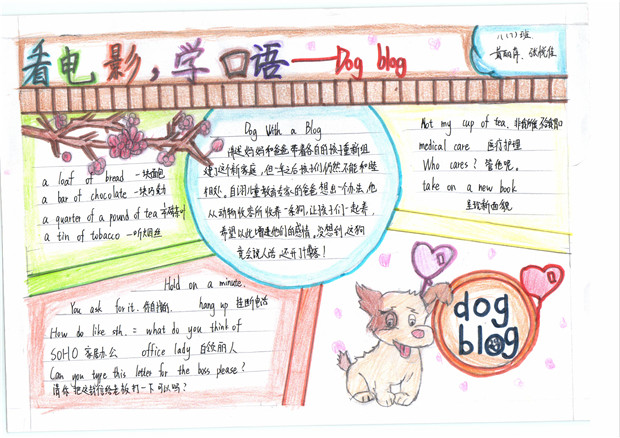 看电影，学口语——Dog blog
八(7)班
a loaf of bread 一块面包
a bar of chocolate 一块巧克力
a quarter of a pound of tea
a tin of tobacco 一听烟丝
Dog With a Blog
讲述妈妈和爸爸带着各自的孩子重新组
建了这个新家庭，但一年之后孩子们仍然不能和睦
相处。自闭儿童教育专家的爸爸想出一个办法，他
从动物收容所收养一条狗，让孩子们一起养，
希望以此增进他们的感情。没想到，这狗
竟会说人话，还开了博客！
Not my cup of tea.
medical care 医疗护理
Who cares? 管他呢。
take on a new book
呈现新面貌
Hold on a minute.
You ask for it. hang up 挂断电话
How do like sth. = what do you think of
SOHO 家居办公 office lady 白领丽人
Can you type this letter for the boss please?
请你把这封信给老板打一下可以吗？
dog
blog